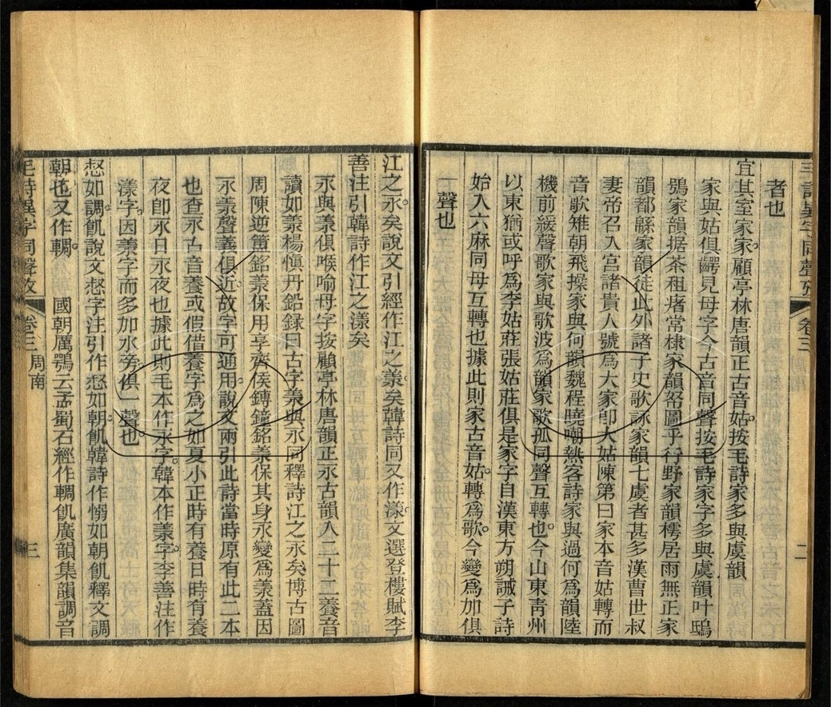 毛詩異字同聲攷
卷三
二
者也
宜其室家家顧亭林唐韻正古音姑按毛詩家多與虞韻
家與姑俱齶見母字今古音同聲按毛詩家字多與虞韻叶鴟
鴞家韻据荼租瘏常棣家韻帑圖乎行野家韻樗居雨無正家
韻都緜家韻徒此外諸子史歌詠家韻七虞者甚多漢曹世叔
妻帝召入宮諸貴人號為大家卽大姑陳第曰家本音姑轉而
音歌雉朝飛操家與何韻魏程曉嘲熱客詩家與過何為韻陸
機前緩聲歌家與歌波為韻家歌孤同聲互轉也今山東青州
以東猶或呼為李姑莊張姑莊俱是家字自漢東方朔誡子詩
始入六麻同母互轉也據此則家古音姑轉為歌今變為加俱
一聲也
江之永矣說文引經作江之羕矣韓詩同又作漾文選登樓賦李
善注引韓詩作江之漾矣
永與羕俱喉喻母字按顧亭林唐韻正永古韻入二十二養音
讀如羕楊愼丹鉛錄曰古字羕與永同釋詩江之永矣博古圖
周陳逆簠銘羕保用享齊侯鎛鐘銘羕保其身永變為羕蓋因
永羕聲義俱近故字可通用說文兩引此詩當時原有此二本
也查永古音養或假借養字為之如夏小正時有養日時有養
夜卽永日永夜也據此則毛本作永字韓本作羕字李善注作
漾字因羕字而多加水旁俱一聲也
惄如調飢說文惄字注引作惄如朝飢韓詩作愵如朝飢釋文調
朝也又作輖 國朝厲鶚云孟蜀石經作輖飢廣韻集韻調音
毛詩異字同聲攷
卷三 周南
三